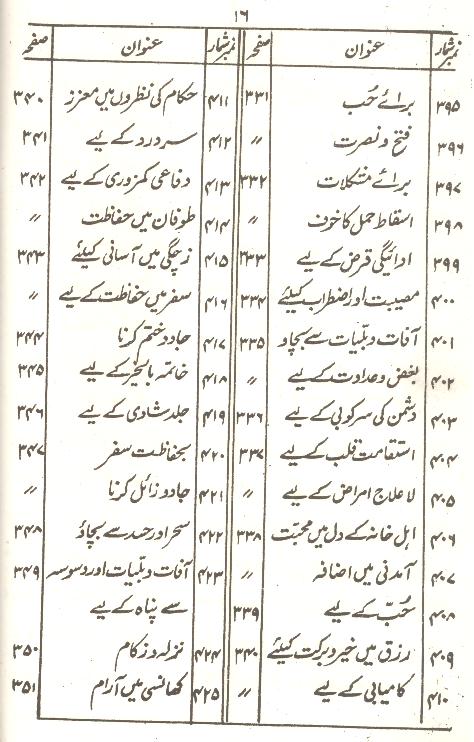 ۱۶
نمبرشمار عنوان صفحہ
۳۹۵ برائے حُب ۳۳۱
۳۹۶ فتح و نصرت ״
۳۹۷ برائے مشکلات ۳۳۲
۳۹۸ اسقاط حمل کا خوف ״
۳۹۹ ادائیگی قرض کے لیے ۳۳۳
۴۰۰ مصیبت اور اضطراب کیلئے ۳۳۴
۴۰۱ آفات و بلیات سے بچاو ۳۳۵
۴۰۲ بغض و عداوت کے لیے ״
۴۰۳ دشمن کی سرکوبی کے لیے ۳۳۶
۴۰۴ استقامت قلب کے لیے ۳۳۷
۴۰۵ لا علاج امراض کے لیے ״
۴۰۶ اہل خانہ کے دل میں محبت ۳۳۸
۴۰۷ آمدنی میں اضافہ ״
۴۰۸ حُبّ کے لیے ۳۳۹
۴۰۹ رزق میں خیر و برکت کیلئے ۳۴۰
۴۱۰ کامیابی کے لیے ״
نمبرشمار عنوان صفحہ
۴۱۱ حکام کی نظروں میں معزز ۳۴۰
۴۱۲ سر درد کے لیے ۳۴۱
۴۱۳ دفاعی کمزوری کے لیے ۳۴۲
۴۱۴ طوفان میں حفاظت ״
۴۱۵ زچگی میں آسانی کیلئے ۳۴۳
۴۱۶ سفر میں حفاظت کے لیے ״
۴۱۷ جادو ختم کرنا ۳۴۴
۴۱۸ خاتمہ بالخیر کے لیے ۳۴۵
۴۱۹ جلد شادی کے لیے ۳۴۶
۴۲۰ بحفاظت سفر ۳۴۷
۴۲۱ جادو زائل کرنا ״
۴۲۲ سحر اور حسد سے بچاؤ ۳۴۸
۴۲۳ آفات و بلیات اور وسوسہ ۳۴۹
سے پناہ کے لیے
۴۲۴ نزلہ و زکام ۳۵۰
۴۲۵ کھانسی میں آرام ۳۵۱